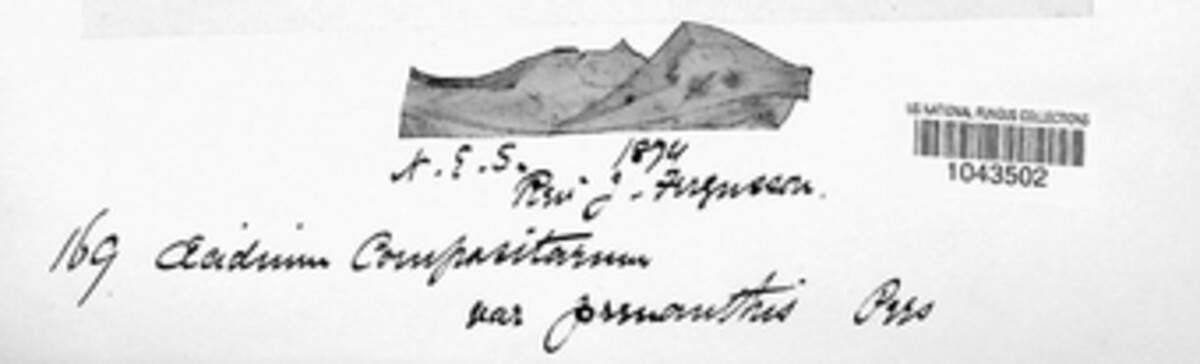 US NATIONAL FUNGUS COLLECTIONS
1043502
N. E. S. 1874
Rev J. Fergusson.
169 Æcidium Compositarum
var prenanthis Pers